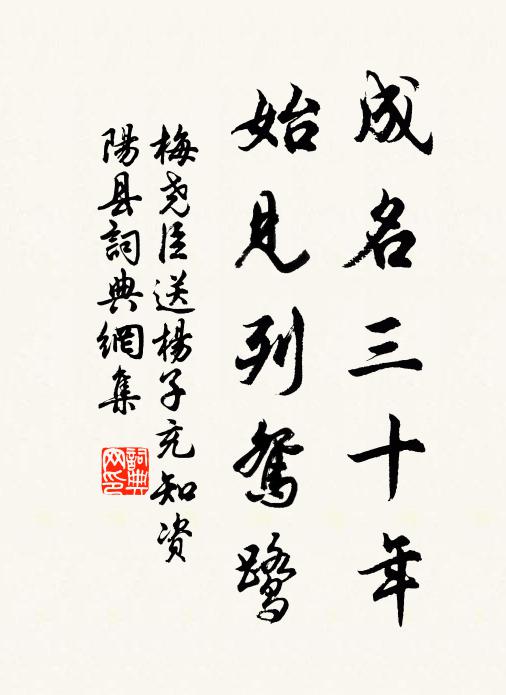 成名三十年
始見列鴛鷺
梅尧臣送楊子充知资
陽县詞典網集
詞典网印